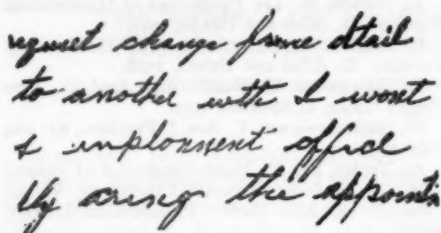 request change frome dtail
to another with I wont
& imployment office
by arıng the appoint